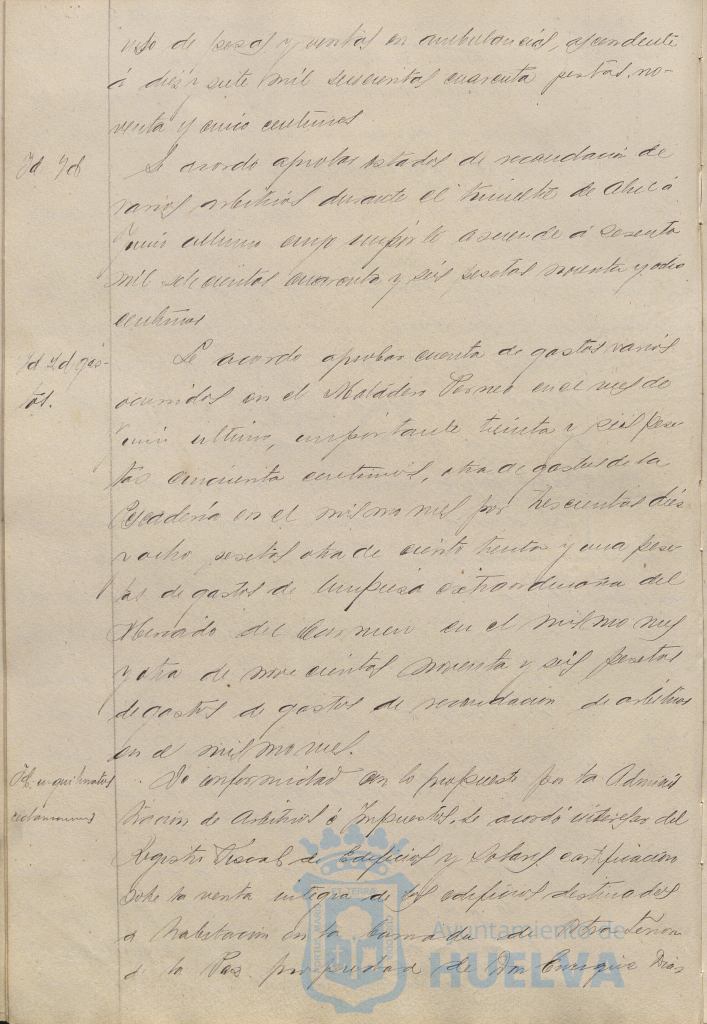 de pesas y ventas en ambulancias, ascendente
á diez y siete mil seiscientas cuarenta pesetas no-
venta y cinco centimos
Id Id
Se acordo aprobar estados de recaudacion de
varios arbitrios durante el trimestre de Abril á
Junio ultimo cuyo importe asciende á sesenta
mil setecientas cuarenta y seis pesetas noventa y ocho
centimos
Id Id gas-
tos.
Se acordo aprobar cuenta de gastos varios
ocurridos en el Matadero en el mes de
Junio ultimo, importante treinta y seis pese-
tas cincuenta centimos, otra de gastos de la
Pescadería en el mismo mes por trescientas diez
y ocho pesetas otra de ciento treinta y una pese-
tas de gastos de limpieza extraordinaria del
Mercado del Carmen en el mismo mes
y otra de novecientas noventa y seis pesetas
de gastos de gastos de recaudacion de arbitrios
en el mismo mes.
Id inquilinatos
reclamaciones
De conformidad con lo propuesto por la Adminis
tracion de Arbitrios é Impuestos, se acordó interesar del
Registro Fiscal de Edificios y Solares certificacion
sobre la renta integra de los edificios destinados
a habitacion en la barriada de
á la Paz propiedad de Don Enrique Diaz
Ayuntamiento de
HUELVA